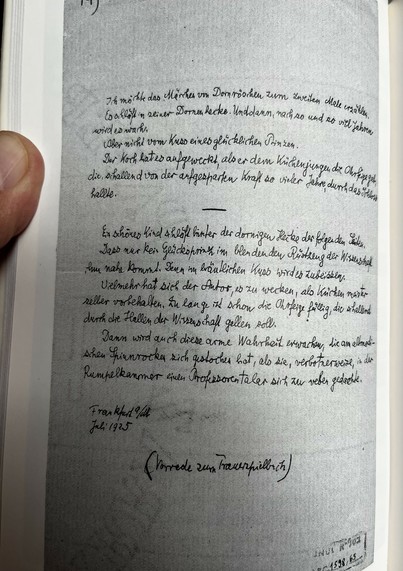 Ich möchte das Märchen vom Dornröschen zum zweiten Male erzählen.
Es schläft in seiner Dornenhecke. Und dann, nach so und so viel Jahren
wird es wach.
Aber nicht vom Kuss eines glücklichen Prinzen.
Der Koch hat es aufgeweckt, als er dem Küchenjungen die Ohrfeige gab,
die, schallend von der aufgesparten Kraft so vieler Jahre, durch das Schloss
hallte.
Ein schönes Kind schläft hinter der dornigen Hecke der folgenden Seiten.
Dass nur kein Glücksprinz im blendenden Rüstzeug der Wissenschaft
ihm nahe kommt. Denn im bräutlichen Kuss wird es zubeissen.
Vielmehr hat sich der Autor, es zu wecken, als Küchenmeister
selber vorbehalten. Zu lange ist schon die Ohrfeige fällig, die schallend
durch die Hallen der Wissenschaft gellen soll.
Dann wird auch diese arme Wahrheit erwachen, die am altmodi-
schen Spinnrocken sich gestochen hat, als sie, verbotnerweise, in der
Rumpelkammer einen Professorentalar sich zu weben gedachte.
Frankfurt a/M
Juli 1925
(Vorrede zum Trauerspielbuch)